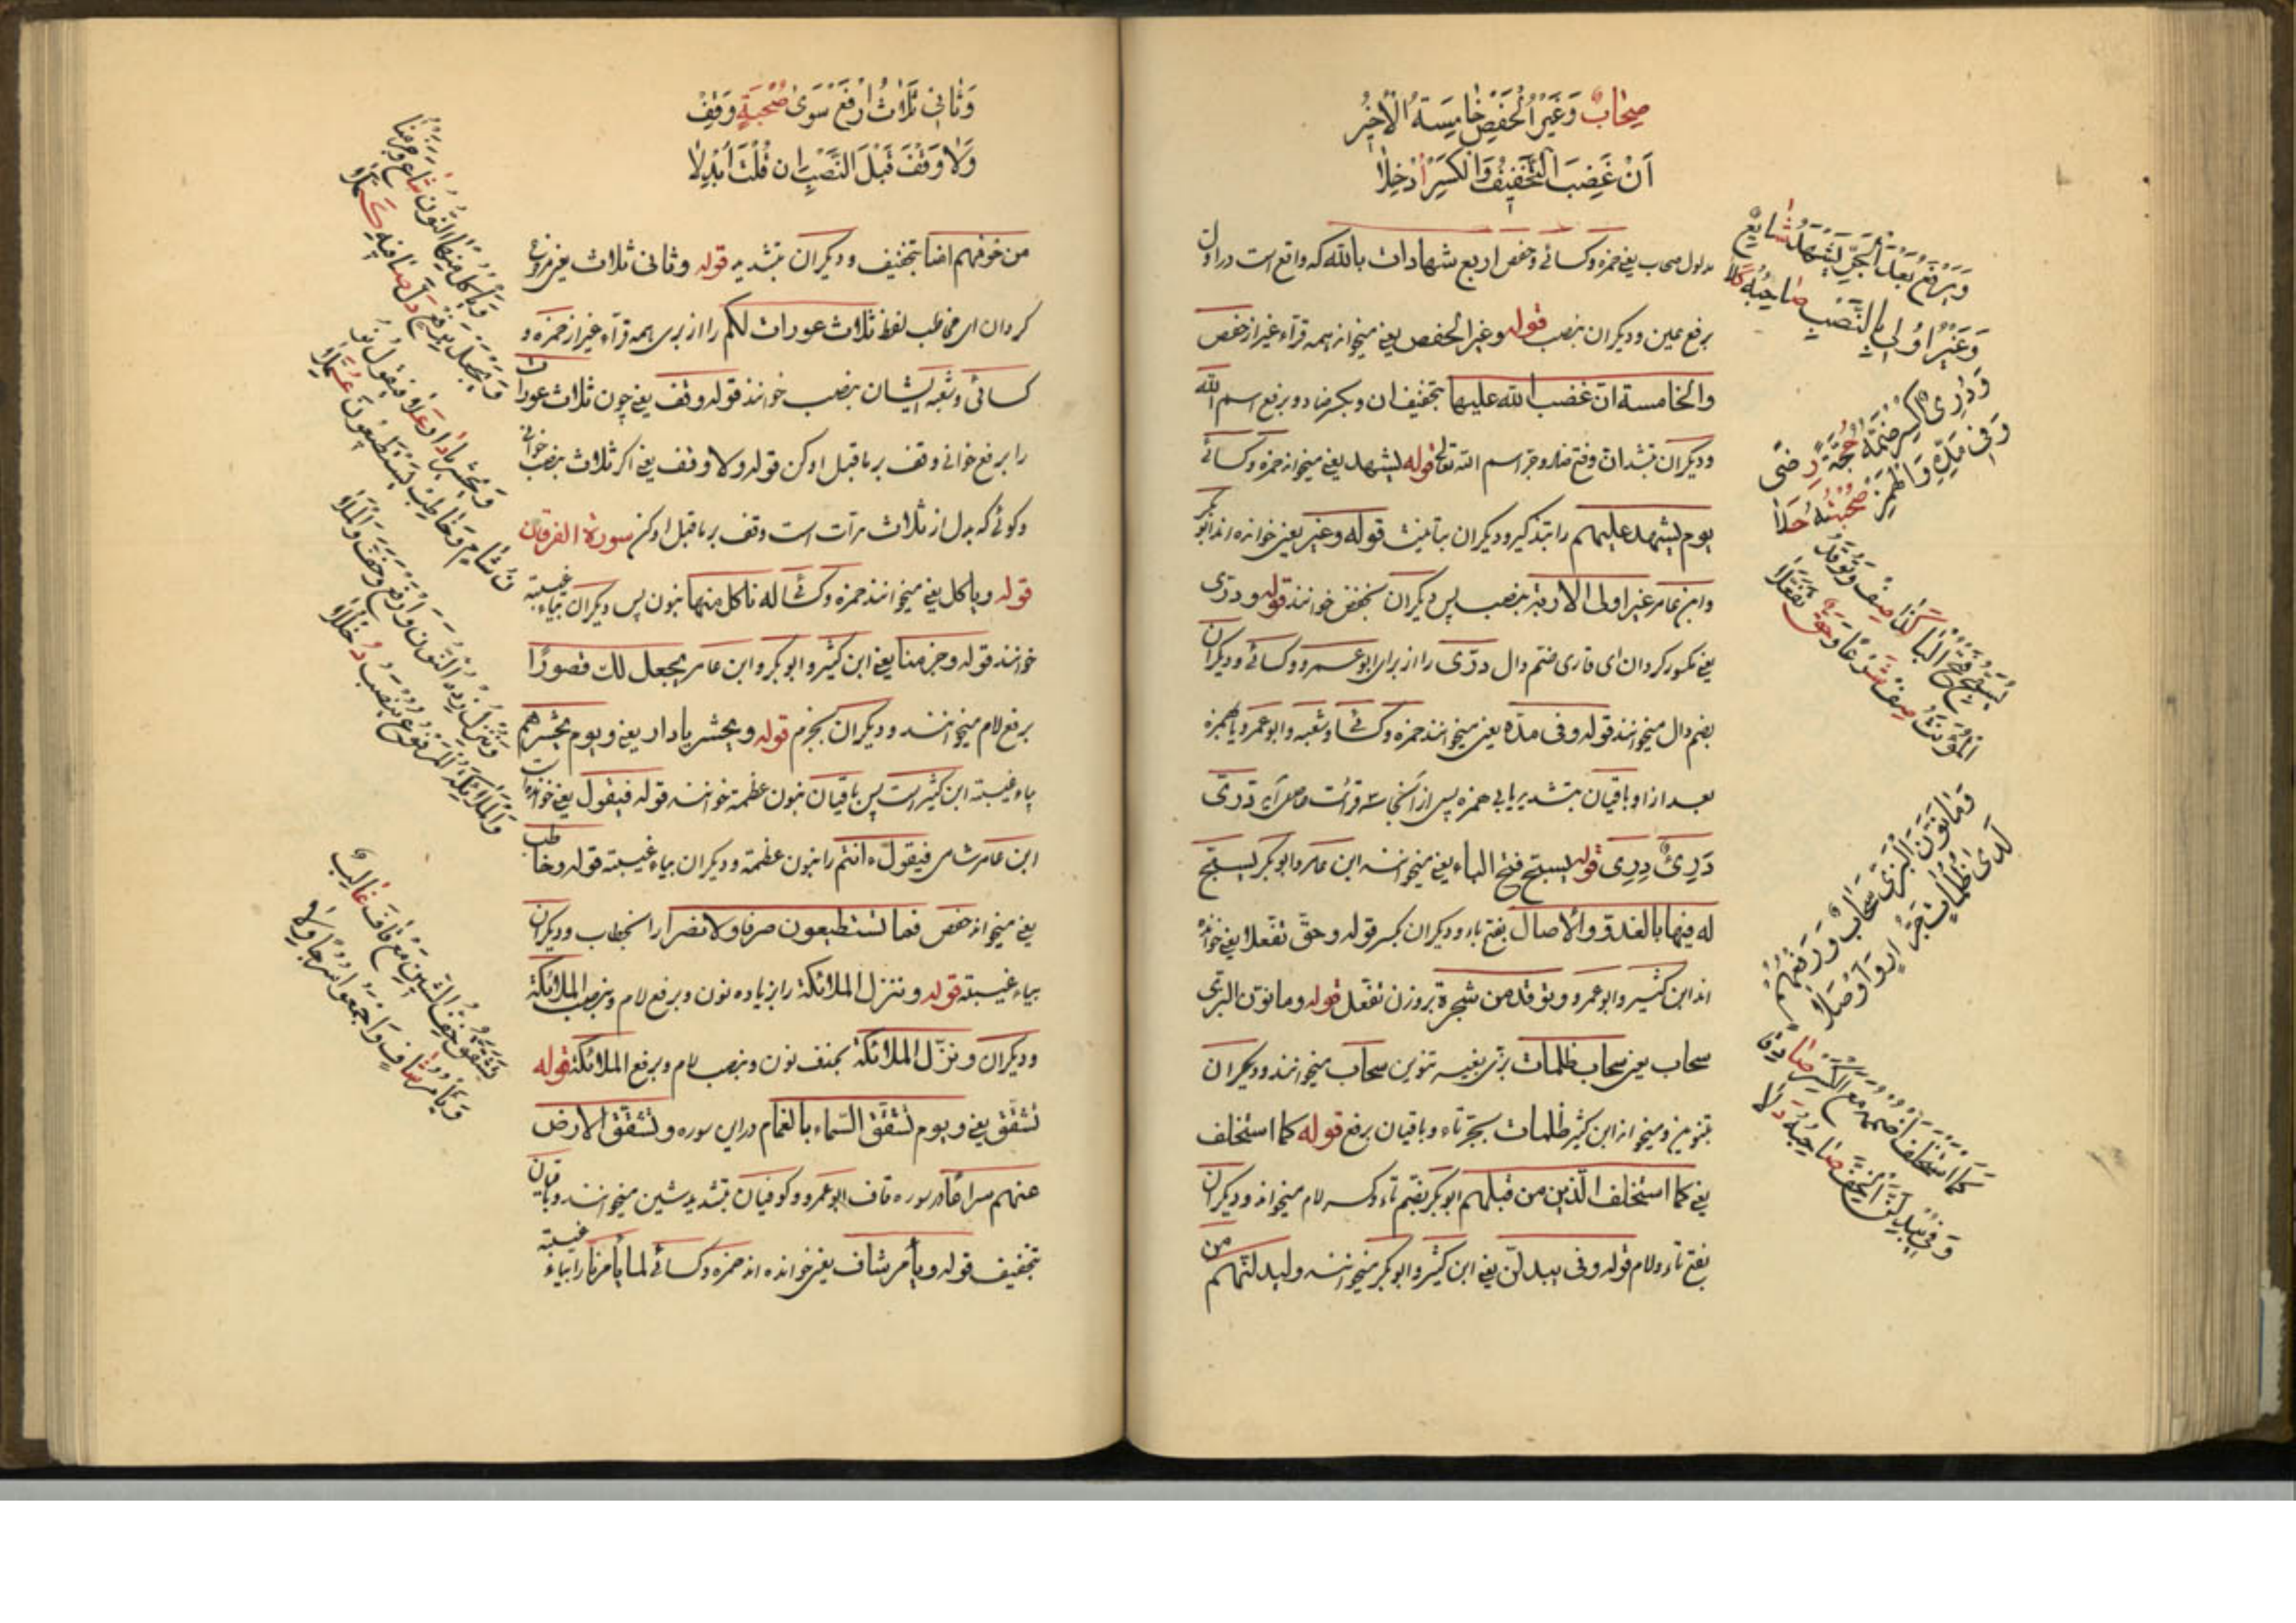 صِحَابٌ وَغَيْرُ الْحَفْصِ خَامِسَةُ الْأَخِيرُ
أَنْ غَضِبَ التَّخْفِيفُ وَالْكَسْرُ أُدْخِلَا
مدلول صحاب یعنی حمزه وکسائی وحفص اربع شهادات بالله که واقع است در اول
برفع عین ودیکران بنصب قوله وغیر الحفص یعنی میخوانند همه قرآء غیر از حفص
والخامسة ان غضب الله علیها بتخفیف ان وبکسر ضاد وبرفع اسم الله
ودیکران بتشدید ان وفتح ضاد وجر اسم الله تعالی قوله یشهد یعنی میخواند حمزه وکسائی
یوم یشهد علیهم را بتذکیر ودیکران بتانیث قوله وغیر یعنی خوانده اند ابوبکر
وابن عامر غیر اولی الاربة بنصب پس دیکران بخفض خوانند قوله ودری
یعنی مکسور کردان ای قاری ضم دال درّی را از برای ابوعمرو وکسائی ودیکران
بضم دال میخوانند قوله وفی مدّه یعنی میخوانند حمزه وکسائی وشعبه وابوعمرو یا همزه
بعد از او باقیان بتشدید یا بی همزه پس از آنجا سه قرائت حاصل آید درّی
دُرِیءٌ دِرِیءٌ قوله یسبح فتح الباء یعنی میخوانند ابن عامر وابوبکر یسبح
له فیها بالغدو والآصال بفتح باء ودیکران بکسر قوله وحق تفعلا یعنی خوانده
اند ابن کثیر وابوعمرو وتوقد من شجرة بر وزن تفعّل قوله وما نوّن البزی
سحاب یعنی سحاب ظلمات بزی بغیر تنوین سحاب میخوانند ودیکران
بتنوین ومیخواند ابن کثیر ظلمات بجر تاء وباقیان برفع قوله کما استخلف
یعنی کما استخلف الّذین من قبلهم ابوبکر بضم تاء وکسر لام میخواند ودیکران
بفتح تاء ولام قوله وفی یبدلنّ یعنی ابن کثیر وابوبکر میخوانند ولیبدلنّهم من
وَيَرْفَعُ بَعْدُ الْجَرِّ يَشْهَدُ شَائِعٌ
وَغَيْرُ أُولِي بِالنَّصْبِ صَاحِبُهُ كَلَا
وَدُرِّيٌّ اكْسِرْ ضَمَّهُ حُجَّةً رِضًى
وَفِي مَدِّهِ وَالْهَمْزِ صُحْبَتُهُ حَلَا
يُسَبِّحُ فَتْحُ الْبَا كَذَا صِفْ وَتُوقَدُ
الْمُؤَنَّثُ صِفْ شَرْعًا وَحَقٌّ تَفَعَّلَا
وَمَا نَوَّنَ الْبَزِّي سَحَابٌ وَرَفْعُهُمْ
لَدَى ظُلُمَاتٍ جَرَّ دَارٍ وَأَوْصَلَا
كَمَا اسْتُخْلِفَ اضْمُمْهُ مَعَ الْكَسْرِ صَادِقًا
وَفِي يُبْدِلَنَّ الْخِفُّ صَاحِبُهُ دَلَا
وَثَانِيَ ثَلَاثَ ارْفَعْ سِوَى صُحْبَةٍ وَقِفْ
وَلَا وَقْفَ قَبْلَ النَّصْبِ إِنْ قُلْتَ أُبْدِلَا
من خوفهم امنا بتخفیف ودیکران بتشدید قوله وثانی ثلاث یعنی مرفوع
کردان ای مخاطب لفظ ثلاث عورات لکم را از برای همه قرآء غیر از حمزه و
کسائی وشعبه ایشان بنصب خوانند قوله وقف یعنی چون ثلاث عورات
را برفع خوانی وقف بر ماقبل او کن قوله ولا وقف یعنی اکر ثلاث بنصب خوانی
وکوئی که بدل از ثلاث مرآت است وقف بر ماقبل او کن سورة الفرقان
قوله ویاکل یعنی میخوانند حمزه وکسائی له ناکل منها بنون پس دیکران بیاء غیبته
خوانند قوله وجزمنا یعنی ابن کثیر وابوبکر وابن عامر یجعل لك قصورًا
برفع لام میخوانند ودیکران بجزم قوله ویحشر یا دار یعنی ویوم یحشرهم
بیاء غیبته ابن کثیر است پس باقیان بنون عظمة خوانند قوله فیقول یعنی خوانده است
ابن عامر شامی فیقول ءانتم را بنون عظمة ودیکران بیاء غیبته قوله وخاطب
یعنی میخواند حفص فما تستطیعون صرفا ولا نصرا را بخطاب ودیکران
بیاء غیبته قوله وننزل الملائکة را بزیاده نون وبرفع لام وبنصب الملائکة
ودیکران ونزّل الملائکة بحذف نون وبنصب لام وبرفع الملائکة قوله
تشقّق یعنی ویوم تشقّق السّماء بالغمام در این سوره وتشقّق الارض
عنهم سراعا در سوره قاف ابوعمرو وکوفیان بتشدید شین میخوانند وباقیان
بتخفیف قوله ویأمر شاف یعنی خوانده اند حمزه وکسائی لما یأمرنا را بیاء غیبته
وَيَأْكُلُ مِنْهَا النُّونُ شَاعَ وَجَزْمُنَا
وَيَجْعَلْ بِرَفْعٍ دَلَّ صَافِيهِ كُمَّلَا
وَنَحْشُرُ يَا دَارٍ عَلَا فَيَقُولُ نُو
نُ شَامٍ وَخَاطِبْ يَسْتَطِيعُونَ عُمَّلَا
وَنُنْزِلُ زِدْهُ النُّونَ وَارْفَعْ وَخِفَّ وَالْمَلَا
وَالْمَلَائِكَةُ الْمَرْفُوعُ يُنْصَبُ دُخْلُلَا
تَشَقَّقُ خِفُّ الشِّينِ مَعْ قَافَ غَالِبٌ
وَيَأْمُرُ شَافٍ وَاجْمَعُوا سُرُجًا وِلَا